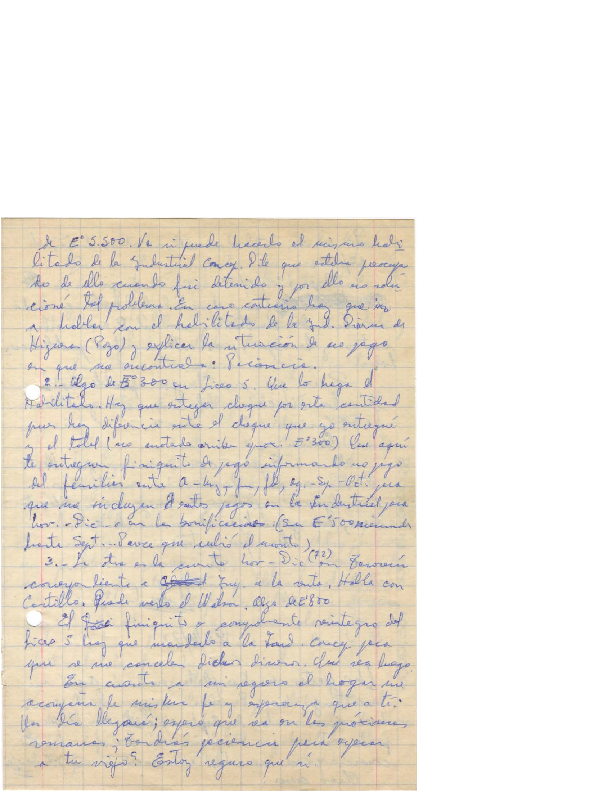 de E° 5.500. Ve si puede hacerlo el mismo habi
litado de la Industrial Concep. Dile que estaba preocupa
do de ello cuando fui detenido y por ello no solu
cioné tal problema. En caso contrario hay que ir
a hablar con el habilitado de la Ind. Diurna de
Higueras (Pozo) y explicar la situación de no pago
en que me encontraba: Paciencia.
2.- Algo de E° 300 en Liceo 5. Que lo haga el
Habilitado. Hay que entregar cheque por esta cantidad
pues hay diferencia entre el cheque que yo entregué
y el total (no anotado arriba E° 300) Que aquí
te entreguen finiquito de pago informando no pago
del familiar entre Ag. - Sep. - Oct. para
que me incluyan pagos en la Industrial para
Nov. - Dic. o en las bonificaciones (Son E° 500
hasta Sept... Parece que subió el monto)
3.- La otra es la cuenta Nov - Dic (72) en Tesorería
correspondiente a Ing. a la renta. Habla con
Castillo. Puede verlo el Walson. Algo de E° 800
El finiquito o comprobante reintegro del
Liceo 5 hay que mandarlo a la Ind. Concep. para
que se me cancelen dichos dineros. Que sea luego.
En cuanto a mi regreso al hogar me
acompaña la misma fe y esperanza que a ti.
Un Día llegaré; espero que sea en las próximas
semanas; Tendrás paciencia para esperar
a tu viejo? Estoy seguro que sí.